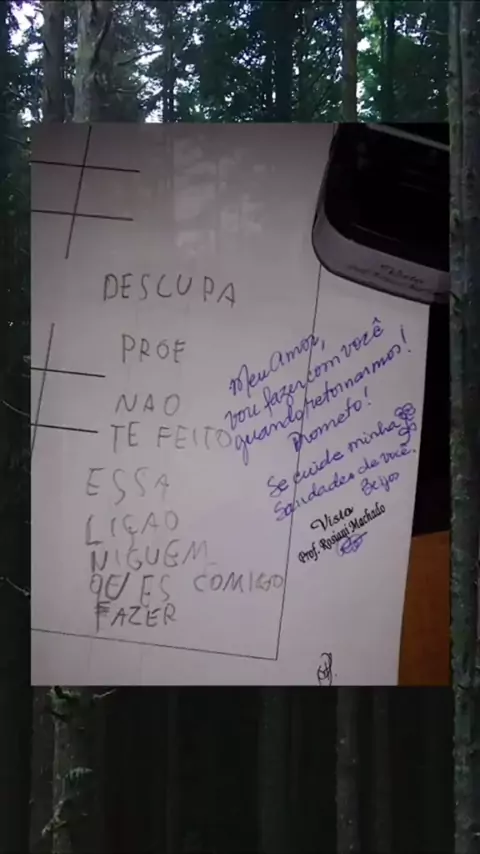 DESCUPA
PROF
NAO
TE FEITO
ESSA
LIÇAO
NIGUEM
QUES COMIGO
FAZER
Meu Amor,
vou fazer com você
quando retornarmos!
Prometo!
Se cuide minha
Saudades de você.
Beijos
Visto
Prof. Rosiani Machado
Visto